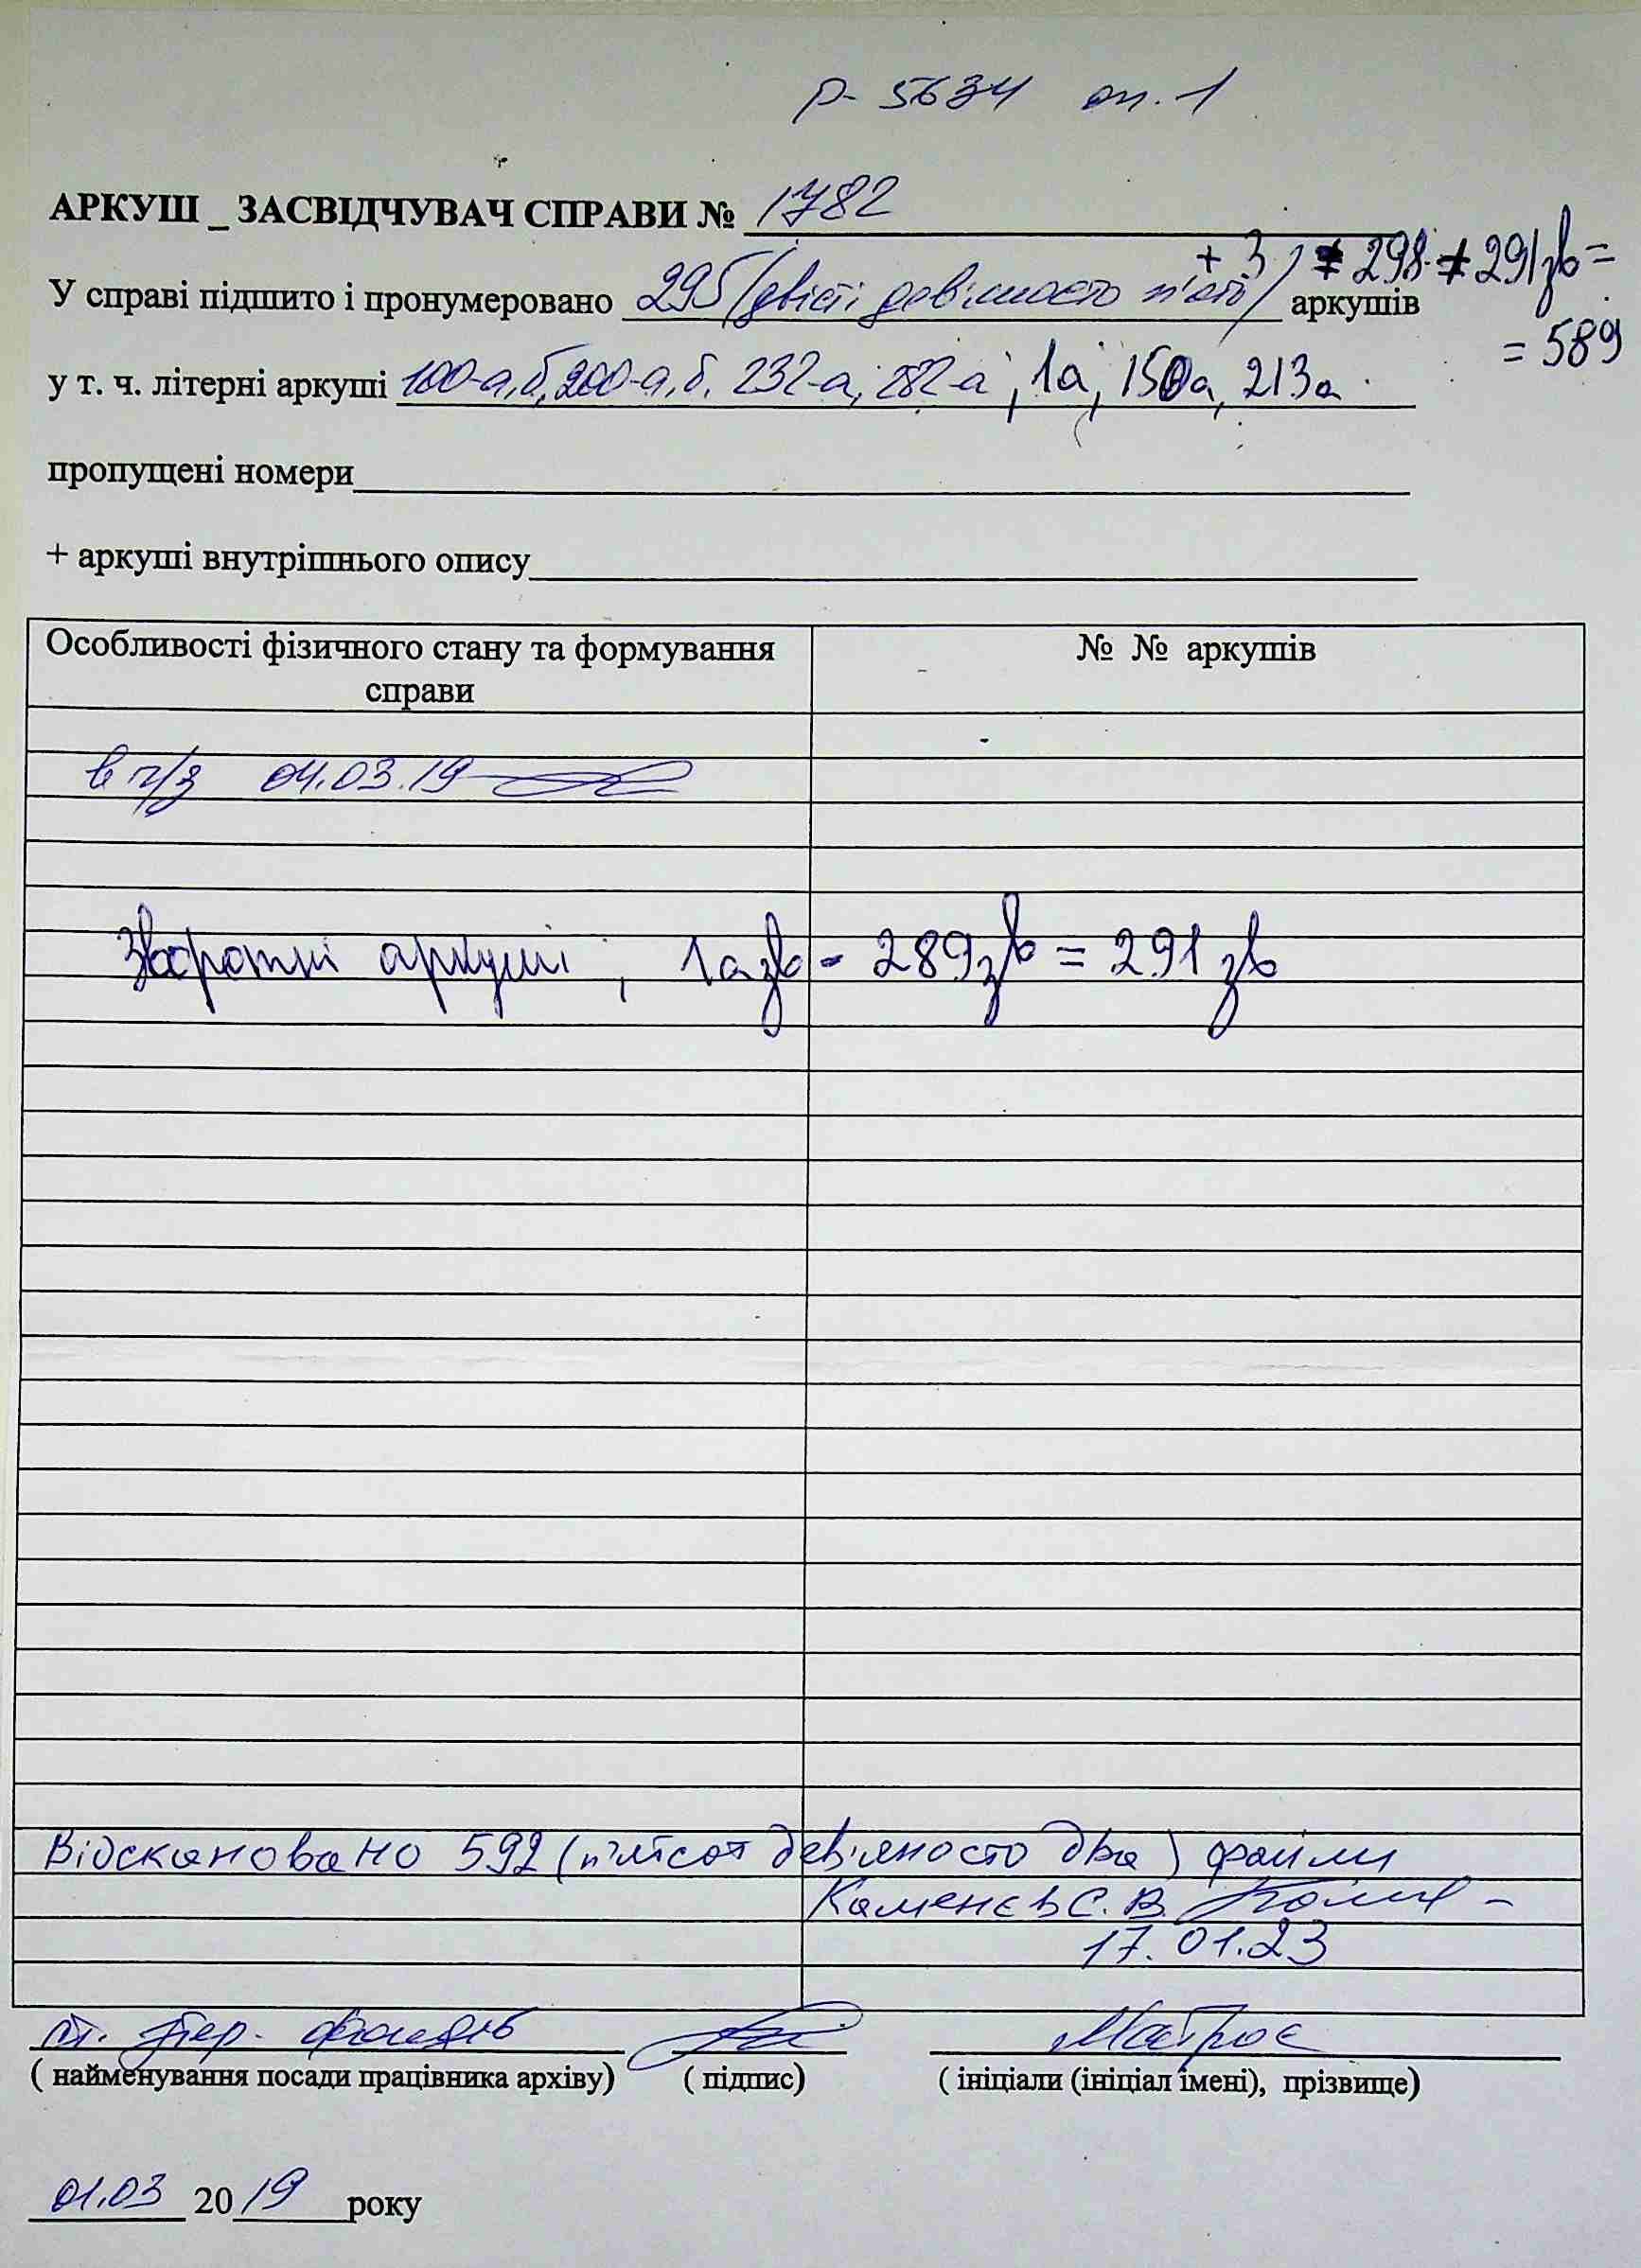 р- 5634 оп. 1
АРКУШ _ ЗАСВІДЧУВАЧ СПРАВИ № 1782
+ 3, = 298 + 291зв =
У справі підшито і пронумеровано 295 (двісті девяносто п'ять) аркушів
= 589
у т. ч. літерні аркуші 100-а,б, 200-а,б, 232-а, 282-а, 1а, 150а, 213а
пропущені номери
+ аркуші внутрішнього опису
Особливості фізичного стану та формування справи № № аркушів
в ч/з 04.03.19
Зворотні аркуші, 1а зв - 289 зв = 291 зв
Відскановано 592 (п'ятсот дев'яносто два) файли
Каменєв С. В.
17.01.23
фондів
( найменування посади працівника архіву) ( підпис) ( ініціали (ініціал імені), прізвище)
01.03 2019 року